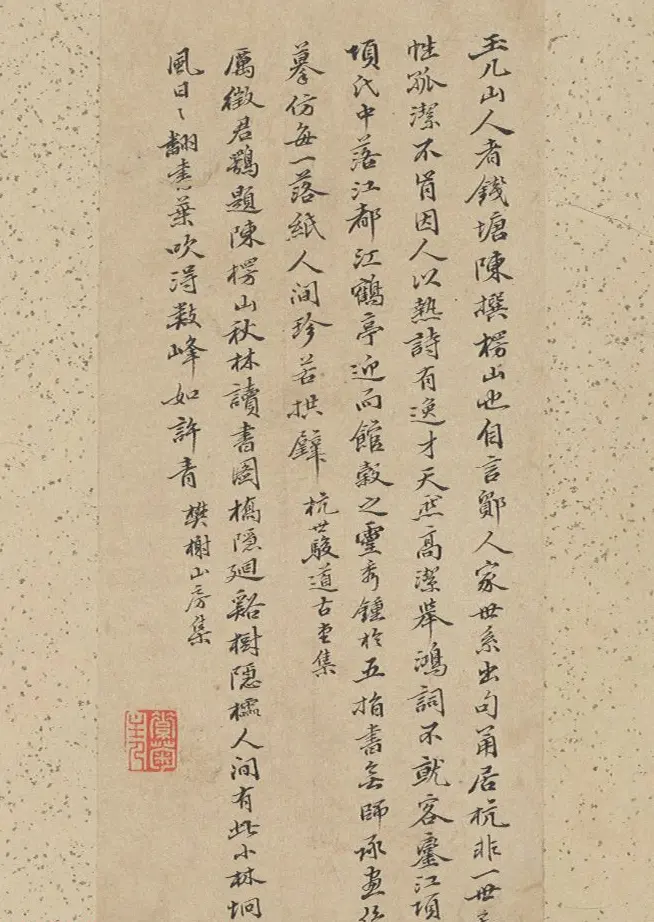 玉几山人者錢塘陳撰楞山也自言鄞人家世系出句甬居杭非一世
性孤潔不肯因人以熱詩有逸才天然高潔舉鴻詞不就客鑾江項
項氏中落江都江鶴亭迎而館穀之靈秀鍾於五指書無師承畫
摹仿每一落紙人間珍若拱璧 杭世駿道古堂集
厲徵君鶚題陳楞山秋林讀書圖橋隱廻谿樹隱櫺人間有此小林坰
風日〻翻書葉吹得數峰如許青 樊榭山房集